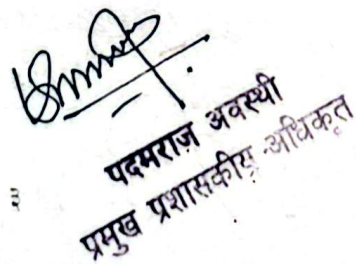 पदमराज अवस्थी
३
प्रमुख प्रशासकीय अधिकृत